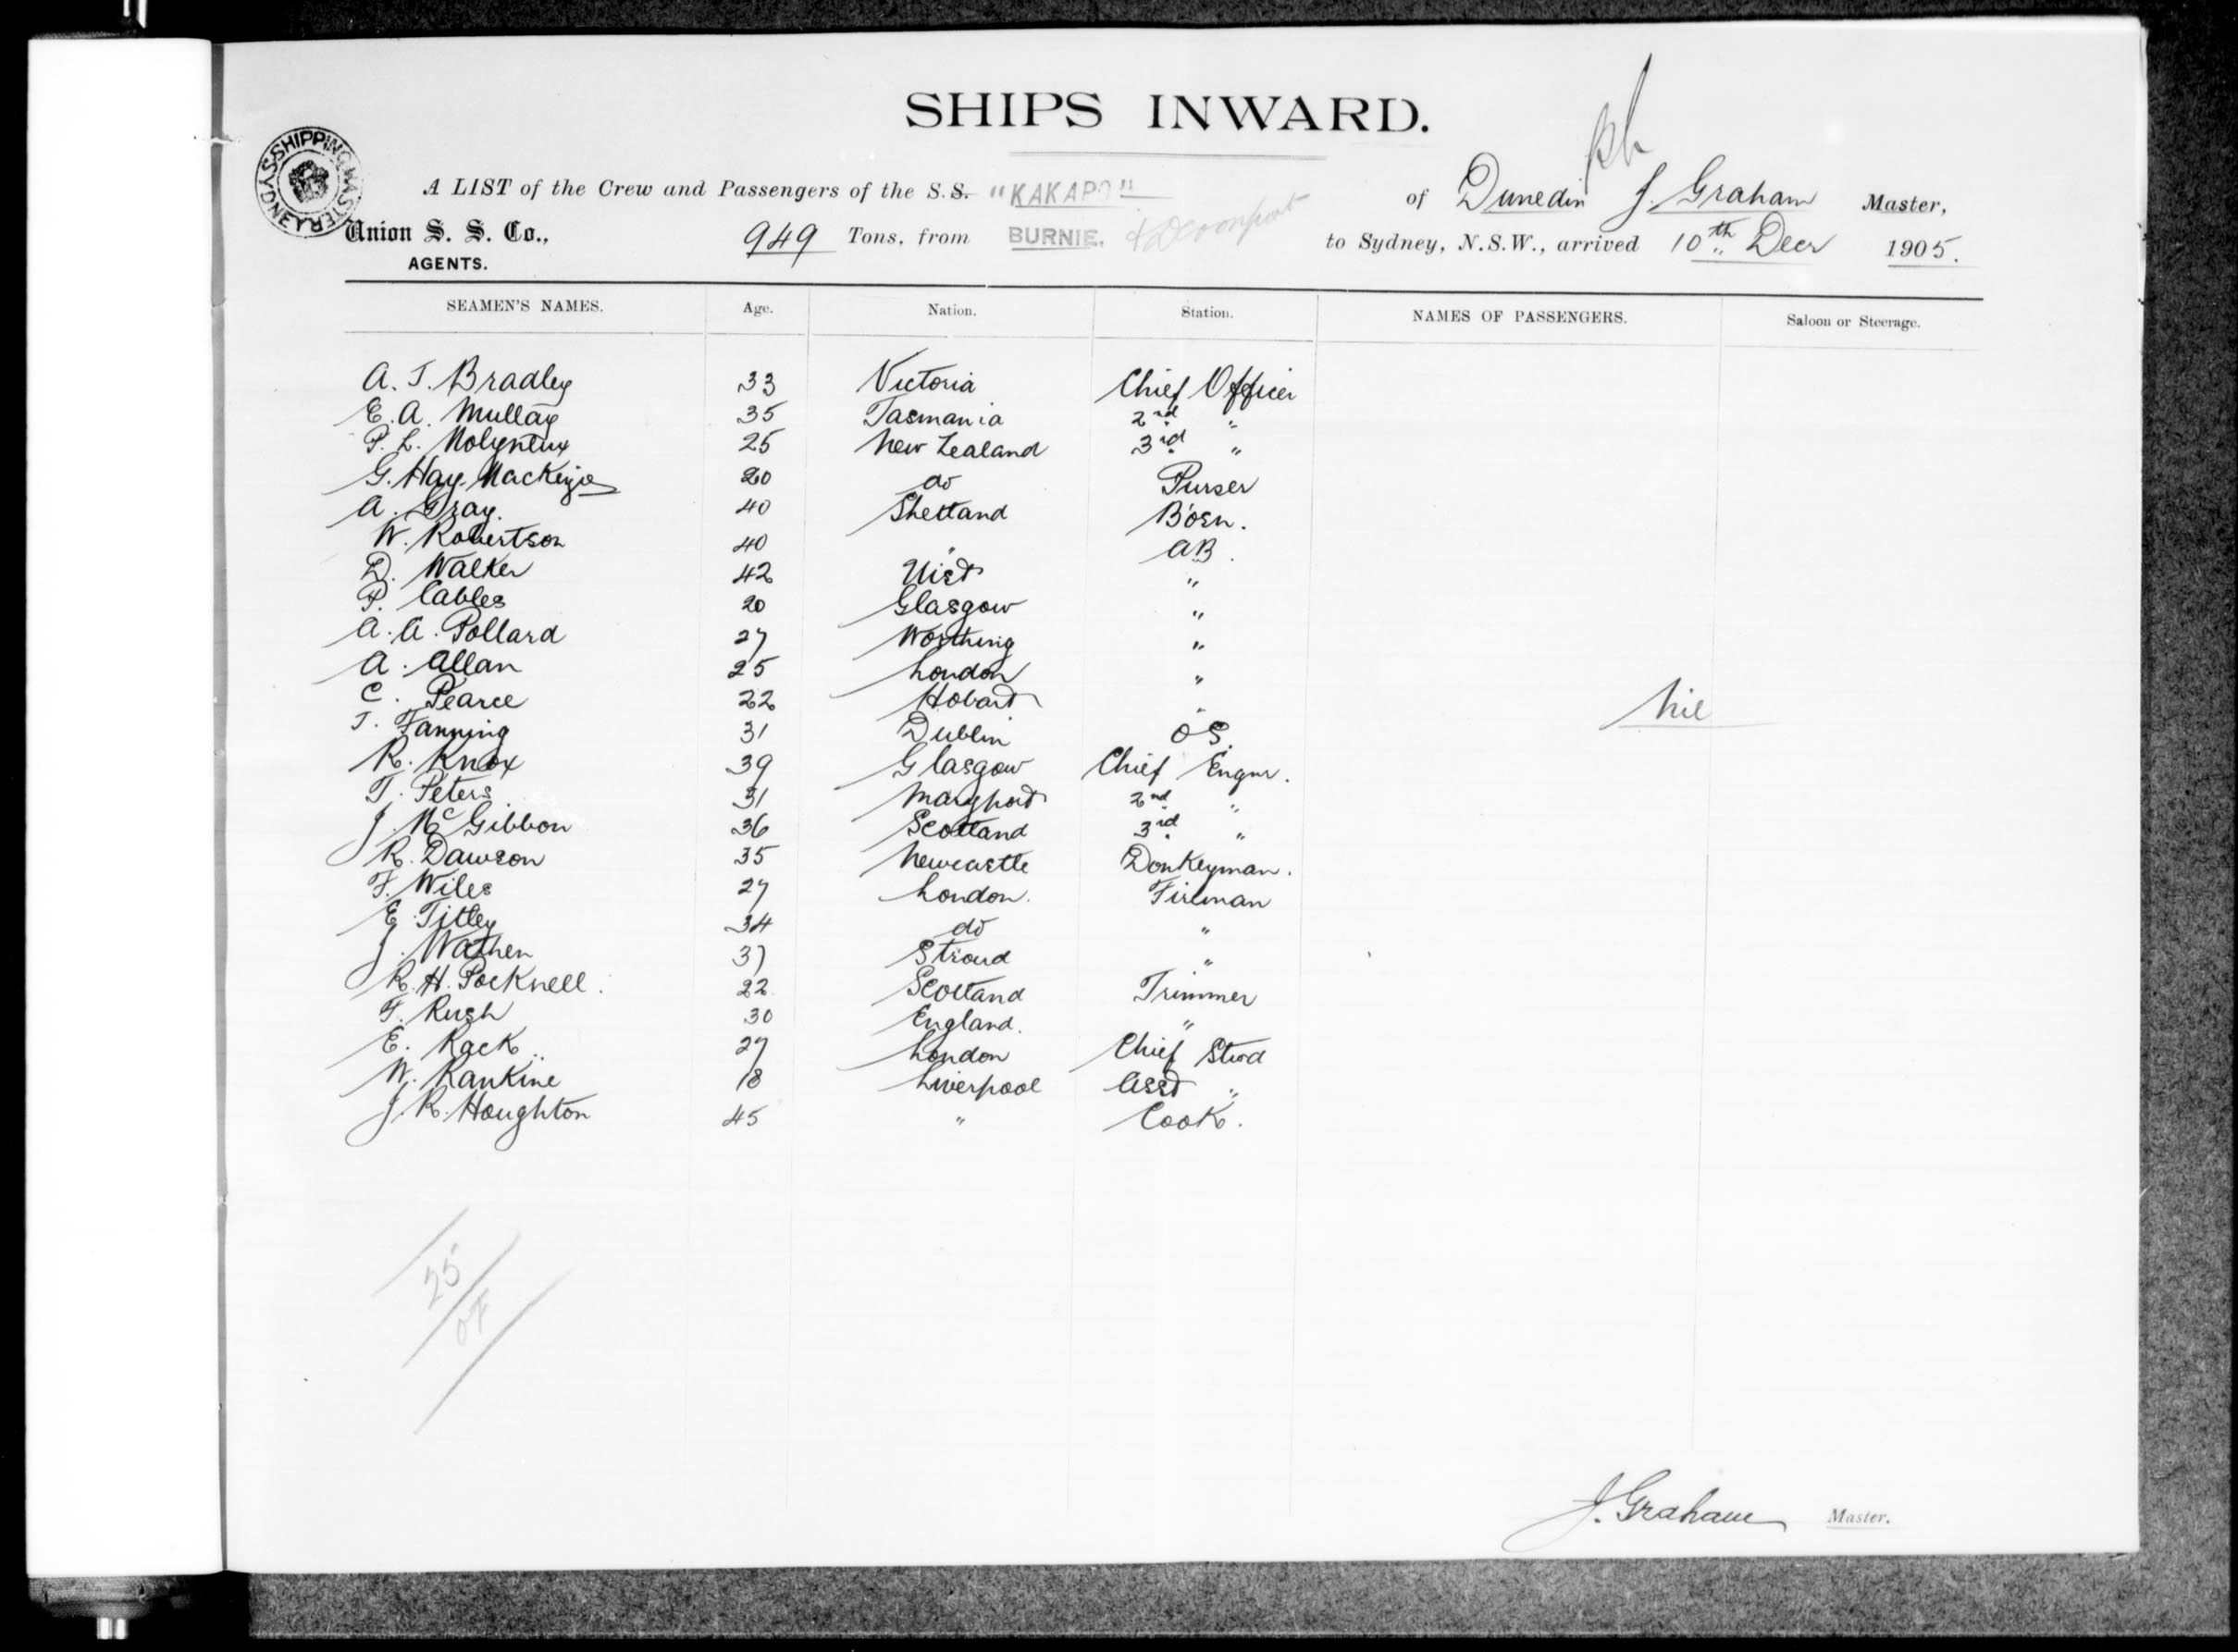 SHIPS INWARD.
SHIPPING MASTER SYDNEY
A LIST of the Crew and Passengers of the S.S. "KAKAPO" of Dunedin J. Graham Master,
Union S. S. Co., AGENTS. 949 Tons, from BURNIE, & Devonport to Sydney, N.S.W., arrived 10th Decr 1905.
SEAMEN'S NAMES. Age. Nation. Station. NAMES OF PASSENGERS. Saloon or Steerage.
A. J. Bradley 33 Victoria Chief Officer
E. A. Mullay 35 Tasmania 2nd "
P. L. Molyneux 25 New Zealand 3rd "
G. Hay. MacKenzie 20 do Purser
A. Gray. 40 Shetland Bosn.
W. Robertson 40 " AB.
D. Walker 42 Uist "
P. Cables 20 Glasgow "
A. A. Pollard 27 Worthing "
A. Allan 25 London "
C. Pearce 22 Hobart "
T. Fanning 31 Dublin OS.
nil
R. Knox 39 Glasgow Chief Engnr.
T. Peters 31 Maryport 2nd "
J. McGibbon 36 Scotland 3rd "
R. Dawson 35 Newcastle Donkeyman.
F. Wiles 27 London. Fireman
E. Titley 34 do "
J. Wathen 37 Stroud "
R. H. Pocknell. 22 Scotland Trimmer
F. Rush 30 England. "
E. Rack 27 London Chief Stwd
W. Rankine 18 Liverpool Asst "
J. R. Houghton 45 " Cook.
25
J. Graham Master.